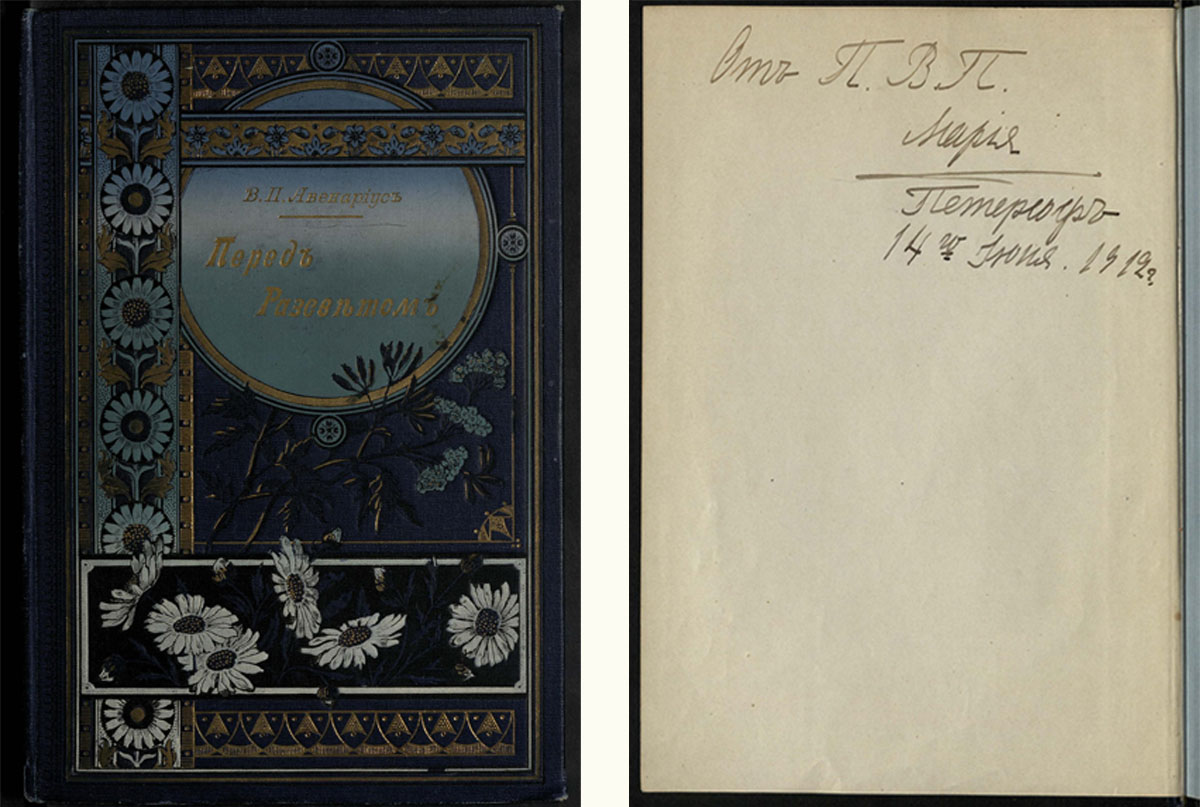 В. П. Авенаріусъ
Передъ
Разсвѣтомъ
Отъ П. В. П.
Марія
Петергофъ
14го Іюня. 1912г.